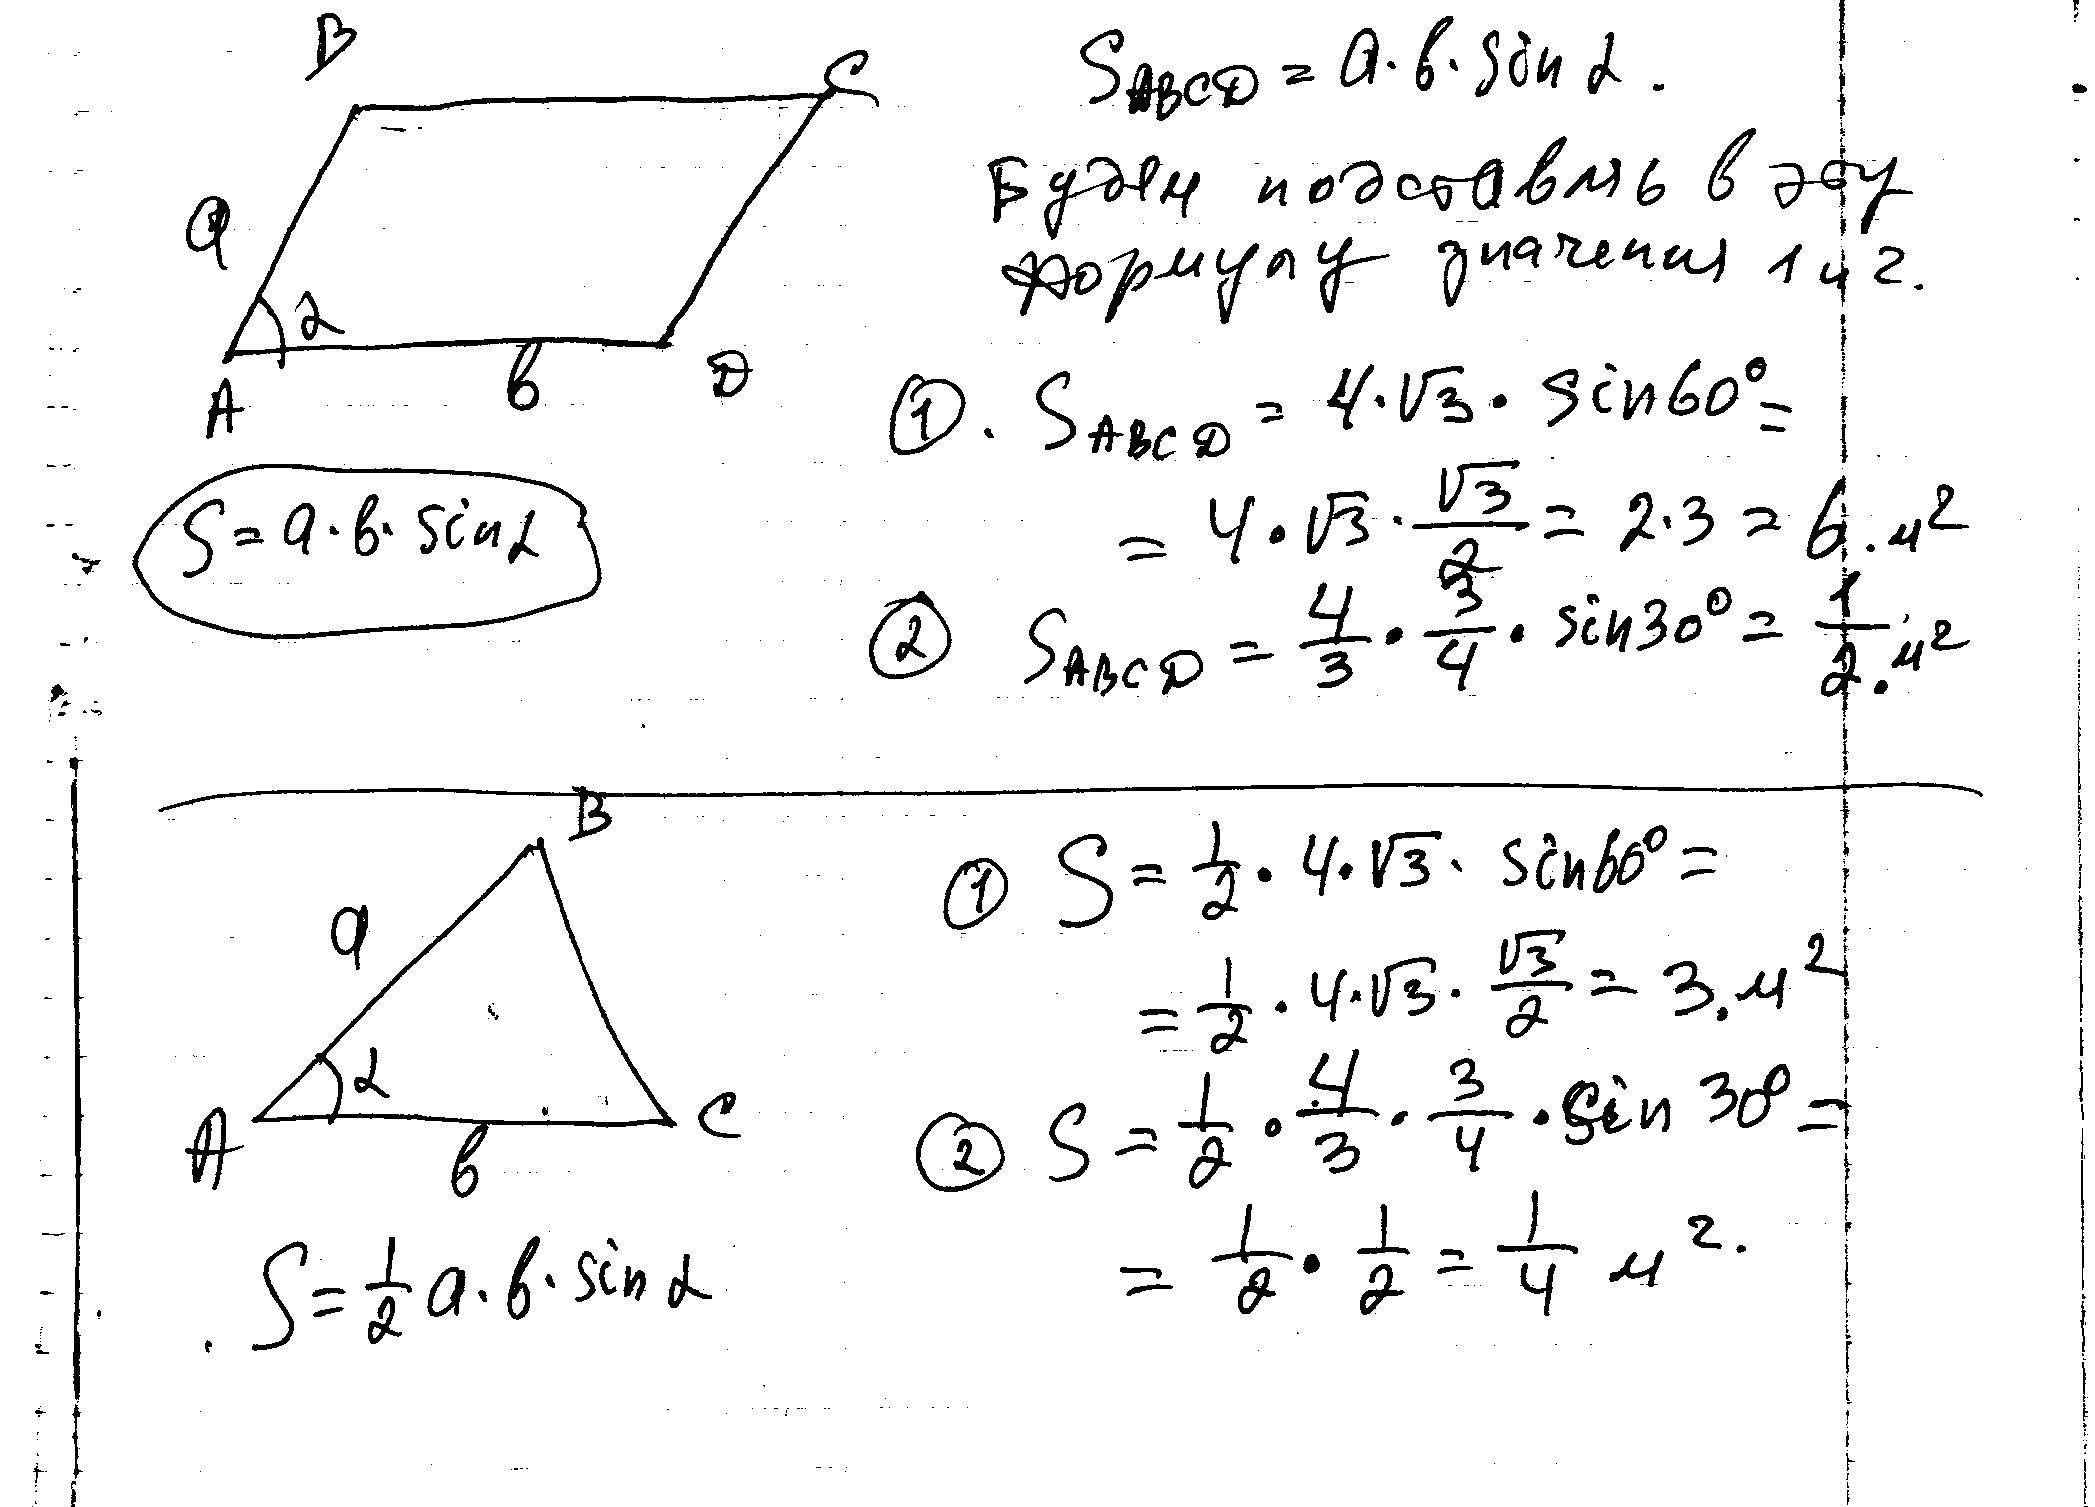 B
C
a
α
A
b
D
S = a · b · sin α
S_ABCD = a · b · sin α.
Будем подставлять в эту
формулу значения 1 и 2.
① . S_ABCD = 4 · √3 · sin 60° =
= 4 · √3 · √3/2 = 2 · 3 = 6. м²
② S_ABCD = 4/3 · 3/4 · sin 30° = 1/2. м²
B
a
α
A
b
C
S = 1/2 a · b · sin α
① S = 1/2 · 4 · √3 · sin 60° =
= 1/2 · 4 · √3 · √3/2 = 3. м²
② S = 1/2 · 4/3 · 3/4 · sin 30° =
= 1/2 · 1/2 = 1/4 м².